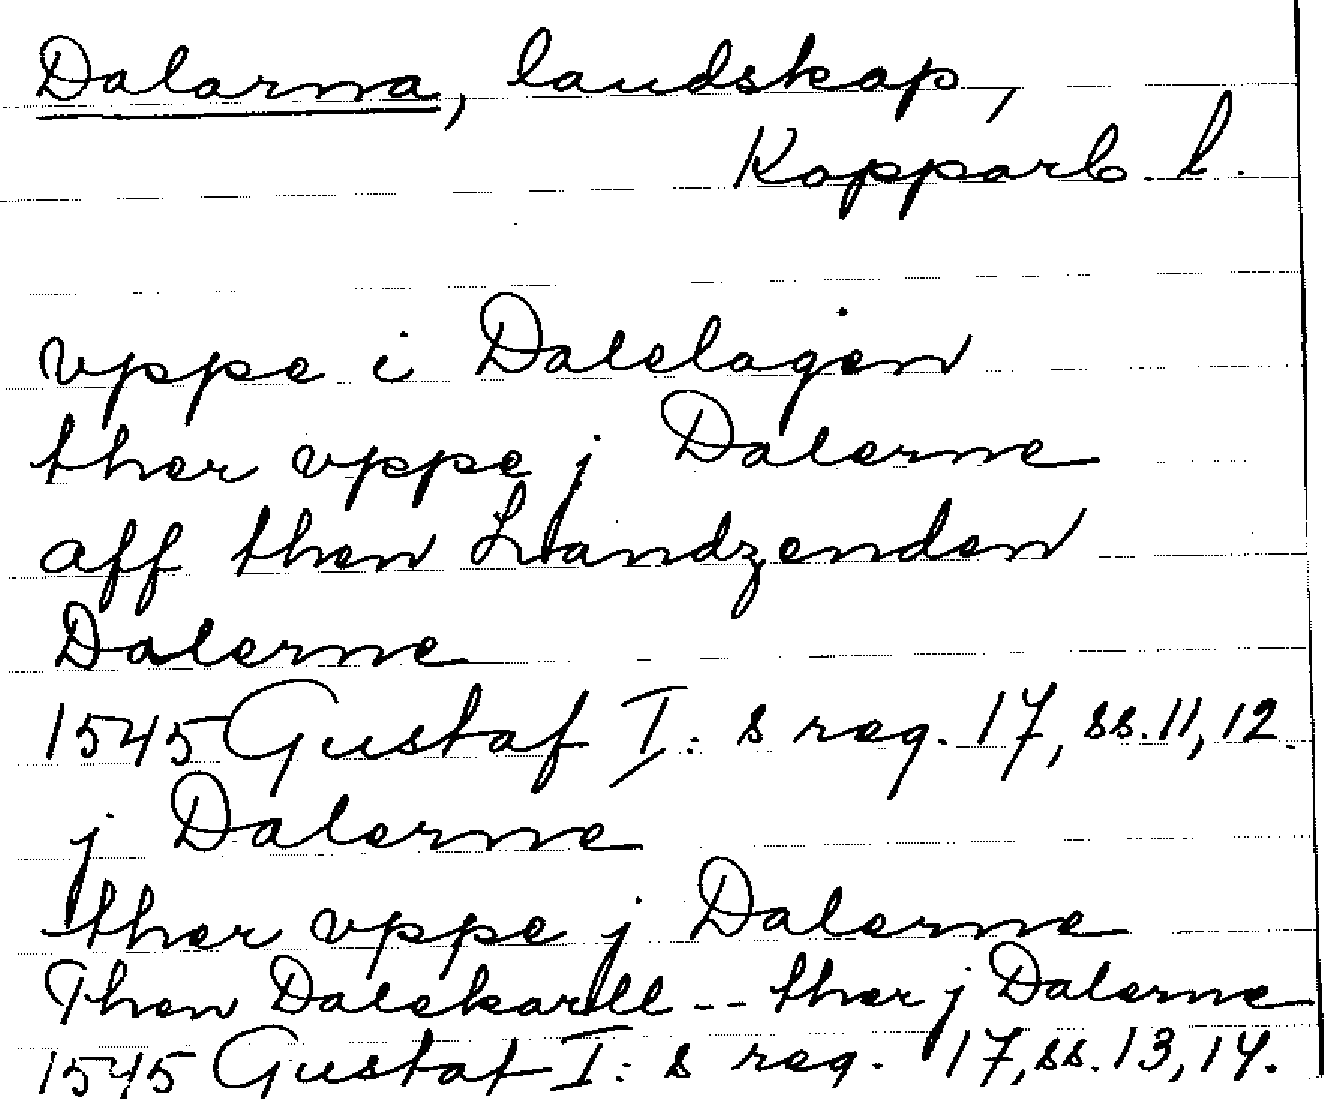 Dalarna, landskap,
Kopparb. l.
vppe i Dalelagen
ther vppe j Dalerne
aff then Landzenden
Dalerne
1545 Gustaf I: s reg. 17, ss. 11, 12.
j Dalerne
ther vppe j Dalerne
Then Dalekarll -- ther j Dalerne
1545 Gustaf I: s reg. 17, ss. 13, 14.